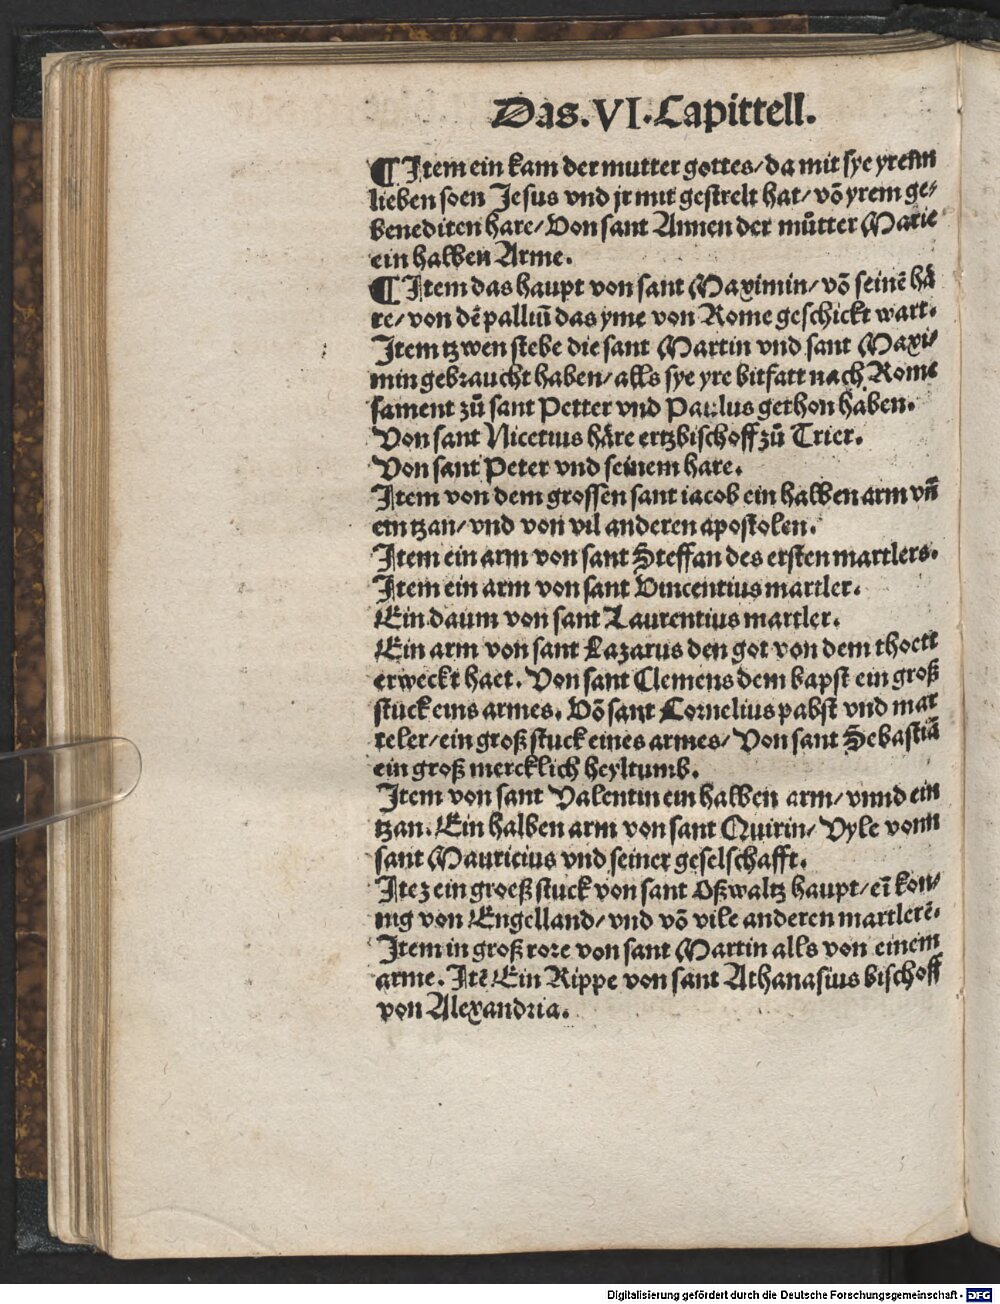 Das.VI.Capittell.
¶Item ein kam der mutter gottes/da mit sye yrenn
lieben soen Jesus vnd jr mit gestrelt hat/võ yrem ge⸗
benediten hare/Von sant Annen der můtter Marie
ein halben Arme.
¶Item das haupt von sant Maximin/võ seinẽ hå
re/von dẽ palliũ das yme von Rome geschickt wart.
Item tzwen stebe die sant Martin vnd sant Maxi⸗
min gebraucht haben/alls sye yre bitfatt nach Rome
sament zů sant Petter vnd Paulus gethon haben.
Von sant Nicetius håre ertzbischoff zů Trier.
Von sant Peter vnd seinem hare.
Item von dem grossen sant iacob ein halben arm vñ
ein tzan/vnd von vil anderen apostolen.
Item ein arm von sant Steffan des ersten martlers.
Item ein arm von sant Vincentius martler.
Ein daum von sant Laurentius martler.
Ein arm von sant Lazarus den got von dem thoett
erweckt haet. Von sant Clemens dem bapst ein groß
stuck eins armes. Võ sant Cornelius pabst vnd mar
teler/ein groß stuck eines armes/Von sant Sebastiã
ein groß mercklich heyltumb.
Item von sant Valentin ein halben arm/vnnd ein
tzan. Ein halben arm von sant Quirin/Vyle vonn
sant Mauricius vnd seiner geselschafft.
Itez ein groeß stuck von sant Oßwaltz haupt/eĩ kon⸗
nig von Engelland/vnd võ vile anderen martlerẽ.
Item in groß rore von sant Martin alls von einem
arme. Itẽ Ein Rippe von sant Athanasius bischoff
von Alexandria.
Digitalisierung gefördert durch die Deutsche Forschungsgemeinschaft - DFG